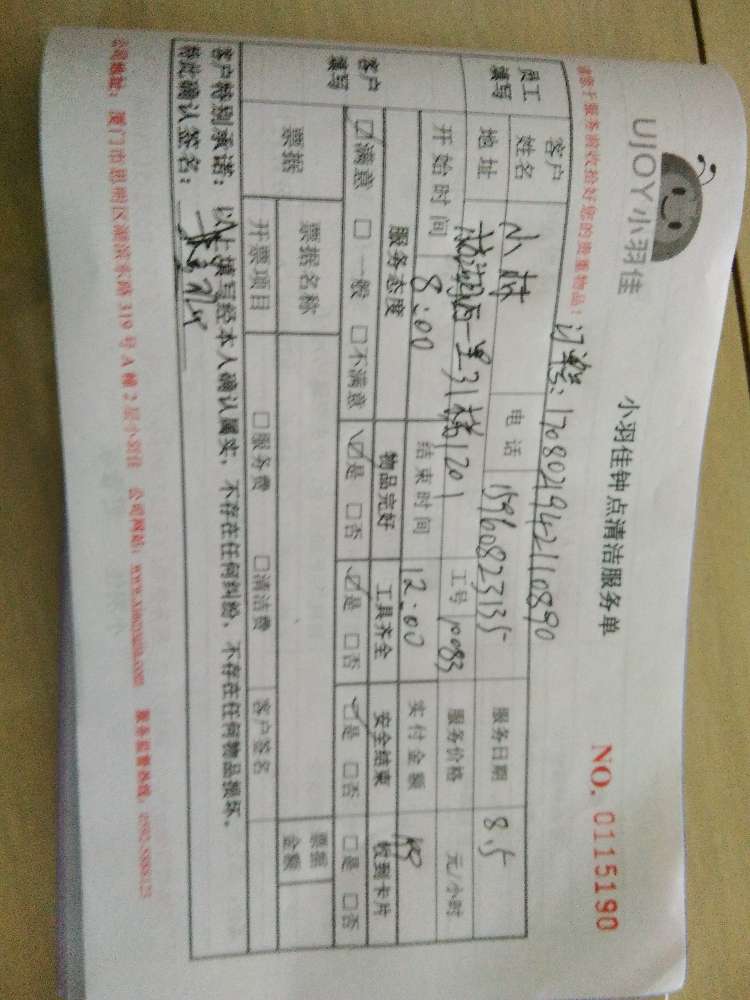 UJOY小羽佳
小羽佳钟点清洁服务单
NO. 0115190
请您于服务前收拾好您的贵重物品！
订单: 1708021942110890
员工填写 客户姓名 小林 电话 15960823135 服务日期 8.5
地址 里31梯1201 工号 10083 服务价格 元/小时
开始时间 8:00 结束时间 12:00 实付金额
客户填写 服务态度 物品完好 工具齐全 安全结束 收到卡片
☑满意 □一般 □不满意 ☑是 □否 ☑是 □否 ☑是 □否 □是 □否
票据 票据名称 票据金额
开票项目 □服务费 □清洁费 客户签名
客户特别承诺：以上填写经本人确认属实，不存在任何纠纷，不存在任何物品损坏。
特此确认签名：
公司地址：厦门市思明区湖滨东路319号A幢2层小羽佳 公司网站：www.xiaoyujia.com 服务监督热线：0592-5888123